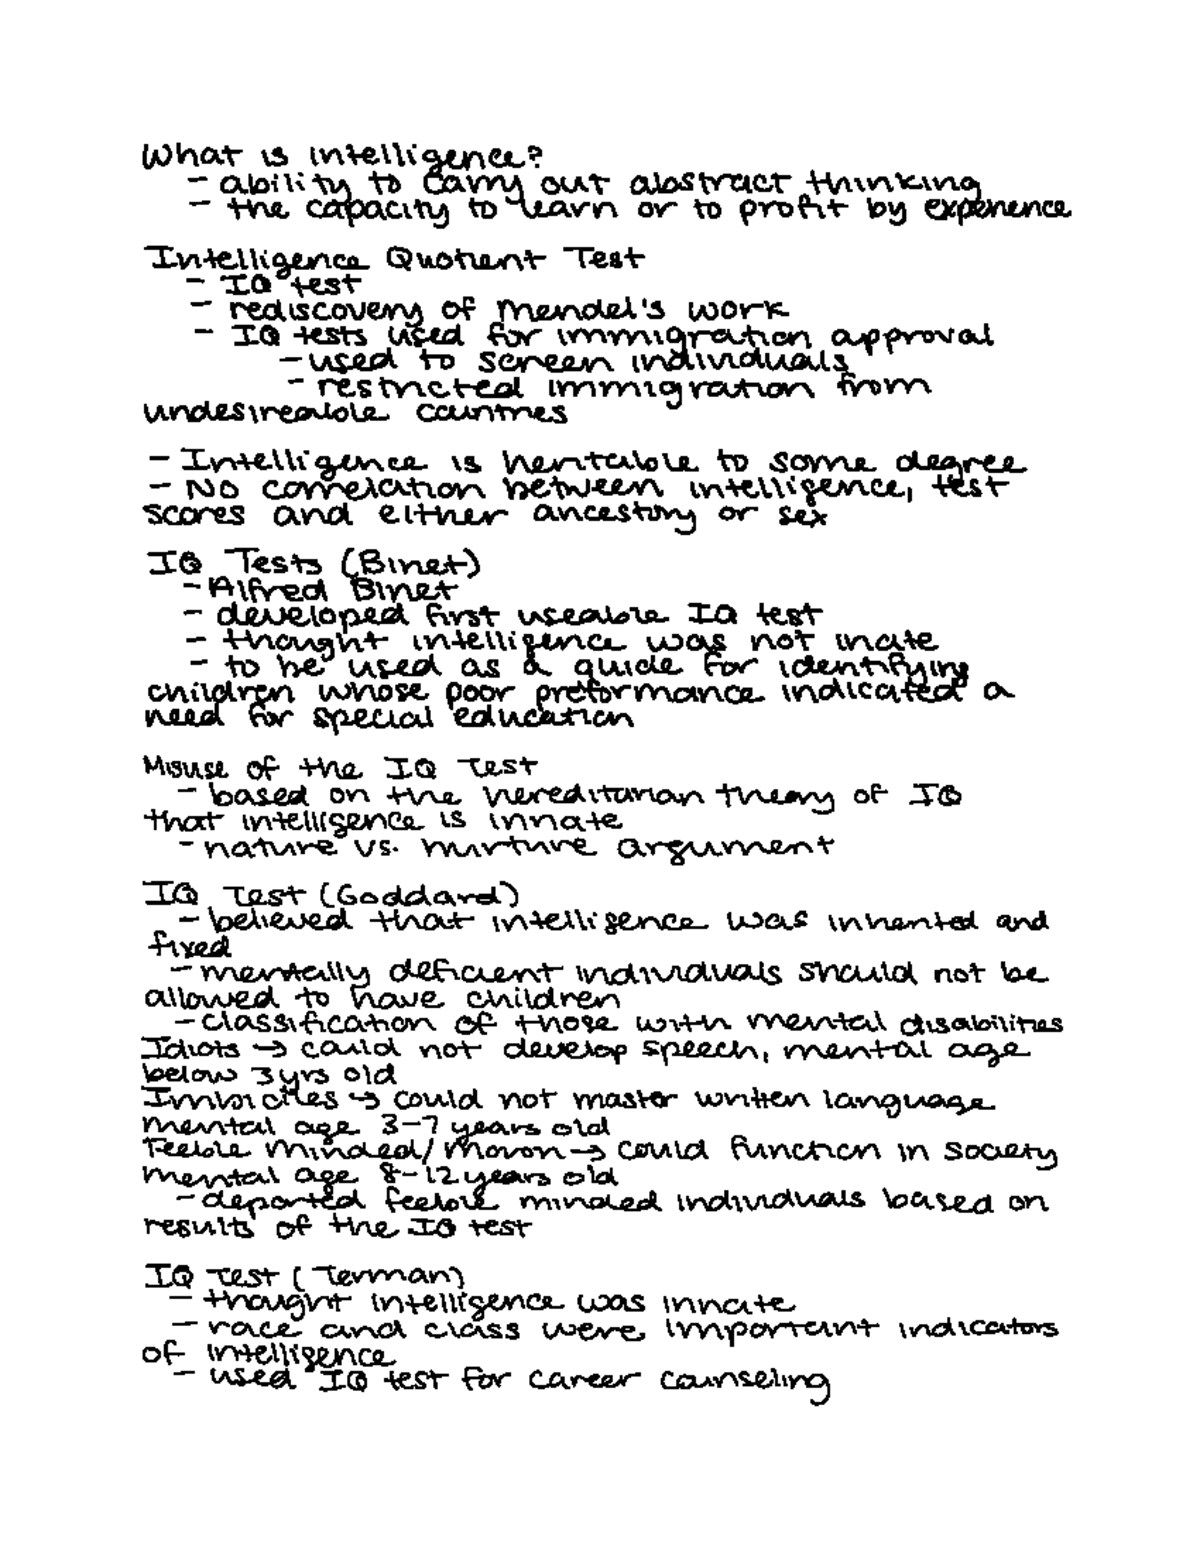 What is intelligence?
- ability to carry out abstract thinking
- the capacity to learn or to profit by experience
Intelligence Quotient Test
- IQ test
- rediscovery of Mendel's work
- IQ tests used for immigration approval
- used to screen individuals
- restricted immigration from
undesireable countries
- Intelligence is heritable to some degree
- No correlation between intelligence, test
scores and either ancestory or sex
IQ Tests (Binet)
- Alfred Binet
- developed first useable IQ test
- thought intelligence was not inate
- to be used as a guide for identifying
children whose poor preformance indicated a
need for special education
Misuse of the IQ Test
- based on the hereditarian theory of IQ
that intelligence is innate
- nature vs. nurture argument
IQ Test (Goddard)
- believed that intelligence was inherited and
fixed
- mentally deficient individuals should not be
allowed to have children
- classification of those with mental disabilities
Idiots → could not develop speech, mental age
below 3 yrs old
Imbiciles → could not master written language
mental age 3-7 years old
Feeble Minded/Moron → could function in society
mental age 8-12 years old
- deported feeble minded individuals based on
results of the IQ test
IQ Test (Terman)
- thought intelligence was innate
- race and class were important indicators
of intelligence
- used IQ test for career counseling